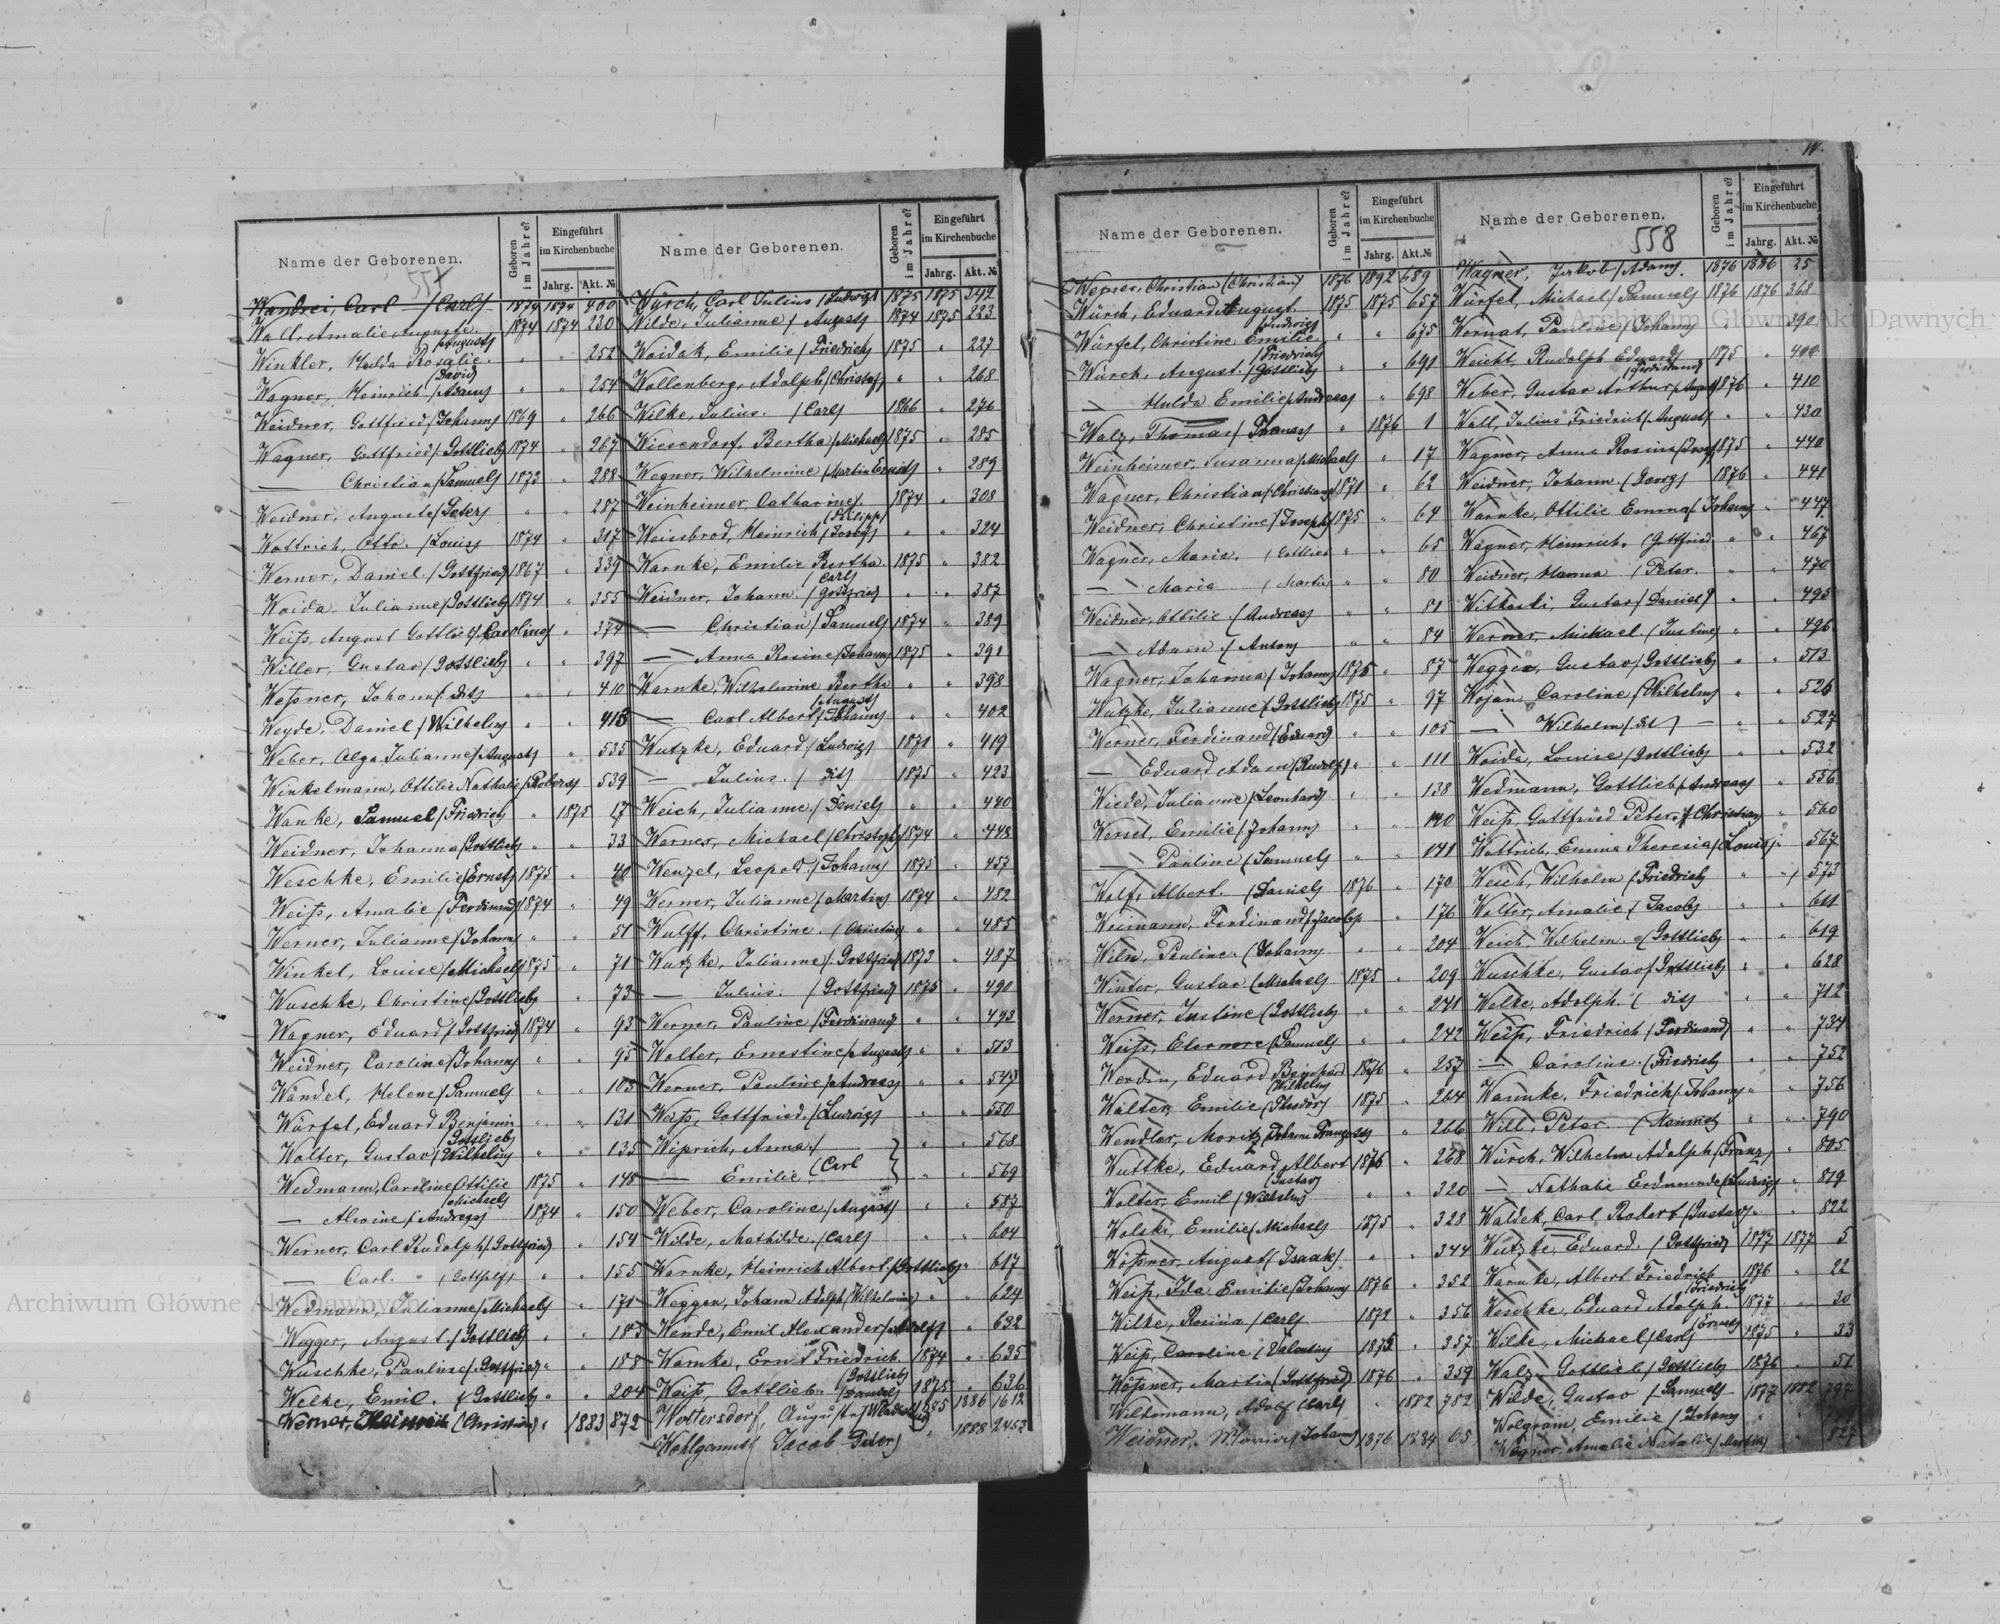 Name der Geborenen.
Geboren im Jahre?
Eingeführt im Kirchenbuche
Jahrg. Akt. №
557
Wandrei, Carl — (Carl) 1874 1874 400
Wall, Amalie Auguste (August) 1874 1874 230
Winkler, Hulda Rosalie (David) " " 252
Wagner, Heinrich (Adam) " " 254
Weidner, Gottfried (Johann) 1869 " 266
Wagner, Gottfried (Gottlieb) 1874 " 267
— Christian (Samuel) 1873 " 288
Weidner, Auguste (Peter) " " 287
Wottrich, Otto. (Louis) 1874 " 317
Werner, Daniel. (Gottfried) 1867 " 339
Woida, Julianne (Gottlieb) 1874 " 355
Weiß, August Gottlieb (Caroline) " 374
Willer, Gustav (Gottlieb) " " 397
Weßner, Johann (dit) " " 410
Weyde, Daniel (Wilhelm) " " 413
Weber, Olga Julianne (August) " 535
Winkelmann, Ottilie Nathalie (Robert) 539
Wanke, Samuel (Friedrich) " 1875 17
Weidner, Johanna (Gottlieb) " " 33
Weschke, Emilie (Ernst) 1875 " 40
Weiß, Amalie (Ferdinand) 1874 " 49
Werner, Julianne (Johann) " " 51
Winkel, Louise (Michael) 1875 " 71
Wuschke, Christine (Gottlieb) " 73
Wagner, Eduard (Gottfried) 1874 " 93
Weidner, Caroline (Johann) " " 95
Wandel, Helene (Samuel) " " 103
Würfel, Eduard Benjamin (Gottlieb) " " 131
Wolter, Gustav (Wilhelm) " " 135
Wedmann, Caroline Ottilie (Michael) 1875 " 148
— Alwine (Andreas) 1874 " 150
Werner, Carl Rudolph (Gottfried) " 154
— Carl. (Gotthilf) " " 155
Wedmann, Julianne (Michael) " 171
Wegger, August (Gottlieb) " " 183
Wuschke, Pauline (Gottfried) " " 188
Welke, Emil. (Gottlieb) " " 204
Werner, Heinrich (Christian) " 1883 872
Name der Geborenen.
Geboren im Jahre?
Eingeführt im Kirchenbuche
Jahrg. Akt. №
Würch, Carl Julius (Ludwig) 1875 1875 212
Wilde, Julianne (August) 1874 1875 223
Woidak, Emilie (Friedrich) 1875 " 227
Wollenberg, Adolph (Christof) " " 268
Wilke, Julius. (Carl) 1866 " 276
Wiesendorf, Bertha (Michael) 1875 " 285
Wegner, Wilhelmine (Martin Ernst) " 289
Weinheimer, Catharine (Philipp) 1874 " 308
Weissbrod, Heinrich (Josef) " " 324
Warnke, Emilie Bertha (Carl) 1875 " 382
Weidner, Johann (Gottfried) " " 387
— Christian (Samuel) 1874 " 389
— Anna Rosine (Johann) 1875 " 391
Warnke, Wilhelmine Bertha (August) " " 398
— Carl Albert (Johann) " " 402
Wutzke, Eduard (Ludwig) 1871 " 419
— Julius. (dit) 1875 " 423
Weich, Julianne (Daniel) " " 440
Werner, Michael (Christoph) 1874 " 448
Wenzel, Leopold (Johann) 1875 " 457
Werner, Julianne (Martin) 1874 " 482
Wulff, Christine. (Christian) " " 485
Wutzke, Julianne (Gottfried) 1873 " 487
— Julius. (Gottfried) 1875 " 490
Werner, Pauline (Ferdinand) " " 493
Wolter, Ernestine (August) " " 513
Werner, Pauline (Andreas) " " 543
Weiß, Gottfried. (Ludwig) " " 550
Wiprich, Anna } " " 568
— Emilie (Carl } " " 569
Weber, Caroline (August) " " 587
Wilde, Mathilde. (Carl) " " 604
Warnke, Heinrich Albert. (Gottlieb) " 617
Weggen, Johann Adolph (Wilhelmine) " " 624
Wende, Emil Alexander (Adolf) " 632
Warnke, Ernst Friedrich (Gottlieb) 1874 " 635
Weiß, Gottlieb (Daniel) 1875 " 636
Woltersdorf, August 1885 1886 1612
Wohlgemut (Jacob Peter) " 1888 2453
Name der Geborenen.
Geboren im Jahre?
Eingeführt im Kirchenbuche
Jahrg. Akt. №
Christian (Christian) 1876 1892 689
Würch, Eduard August (Ludwig) 1875 1875 657
Würfel, Christine Emilie (Friedrich) " " 675
Würch, August. (Gottlieb) " " 691
— Hulda Emilie (Andreas) " " 698
Walz, Thomas (Thomas) " 1876 1
Weinheimer, Susanna (Michael) " 17
Wagner, Christian (Christian) 1871 " 62
Weidner, Christine (Joseph) 1875 " 64
Wagner, Marie. (Gottlieb " " 65
— Maria (Martin " " 80
Weidner, Ottilie (Andreas) " " 81
— Adam (Anton) " " 84
Wagner, Johanna (Johann) 1876 " 87
Wutzke, Julianne (Gottlieb) 1875 " 97
Werner, Ferdinand (Eduard) " " 105
— Eduard Adam (Rudolf) " " 111
Wiede, Julianne (Leonhard) " " 138
Emilie (Johann) " " 140
— Pauline (Samuel) " " 141
Wolf, Albert. (Daniel) 1876 " 170
Weimann, Ferdinand (Jacob) " 176
Pauline (Johann) " " 204
Winter, Gustav (Michael) 1875 " 209
Werner, Justine (Gottlieb) " " 241
Weiß, Eleonore (Samuel) " " 242
Werdin, Eduard Bernhard (Wilhelm) 1876 " 257
Walter, Emilie (Theodor) 1875 " 264
Wendler, Moritz " 266
Wuttke, Eduard Albert (Gustav) 1876 " 268
Wolter, Emil (Wilhelm) " " 320
Wolski, Emilie (Michael) 1875 " 328
Wößner, August (Isaak) " " 344
Weiß, Ida Emilie (Johann) 1876 " 352
Wilke, Rosina (Carl) 1872 " 356
Weiß, Caroline (Valentin) 1873 " 357
Wößner, Martin (Gottfried) 1876 " 359
Adolf (Carl) " 1882 782
Weidner, (Johann) 1876 1884 65
W.
Name der Geborenen.
Geboren im Jahre?
Eingeführt im Kirchenbuche
Jahrg. Akt. №
558
Wagner, Jakob (Adam). 1876 1886 25
Würfel, Michael (Samuel) 1876 1876 368
Wernat, Pauline (Johann) " " 390
Weicht, Rudolph Eduard (Ferdinand) 1875 " 400
Weber, Gustav Arthur (August) 1876 " 410
Wall, Julius Friedrich (August) " " 430
Wagner, Anna Rosina 1875 " 440
Weidner, Johann (Georg) 1876 " 441
Warnke, Ottilie Emma (Johann) " " 447
Wagner, Heinrich. (Gottfried. " " 467
Weidner, Hanna (Peter. " " 470
Wittoski, Gustav (Daniel) " " 495
Werner, Michael (Justine) " " 496
Wegger, Gustav (Gottlieb) " " 513
Wojan Caroline (Wilhelm) " " 526
— Wilhelm (dit) — " " 527
Woida, Louise (Gottlieb) " " 532
Wedmann, Gottlieb (Andreas) " 556
Weiß, Gottfried Peter (Christian) " 560
Wottrich, Emma Theresia (Louis) " 567
Weich, Wilhelm (Friedrich) " " 573
Wolter, Amalie (Jacob) " " 611
Weich, Wilhelm. (Gottlieb) " " 619
Wuschke, Gustav (Gottlieb) " " 628
Welke, Adolph. (dit) " " 712
Weiß, Friedrich (Ferdinand) " " 734
— Caroline (Friedrich) " " 752
Wannke, Friedrich (Johann) " " 756
Will, Peter (Heinrich) " " 790
Würch, Wilhelm Adolph (Franz) " 805
— Nathalie Erdmunde (Ludwig) " 819
Waldek, Carl Robert (Gustav) " " 822
Wutzke, Eduard. (Gottfried) 1877 1877 5
Warnke, Albert Friedrich (Friedrich) 1876 " 22
Weschke, Eduard Adolph. (Ernest) 1877 " 30
Wilke, Michael (Carl) 1875 " 33
Walz, Gottlieb (Gottlieb) 1876 " 51
Wilde, Gustav (Samuel) 1877 1882 797
Wolgram, Emilie (Johann)
Wegner, Amalie Natalie (Martin) " " 827
Archiwum Główne Akt Dawnych
Archiwum Główne Akt Dawnych